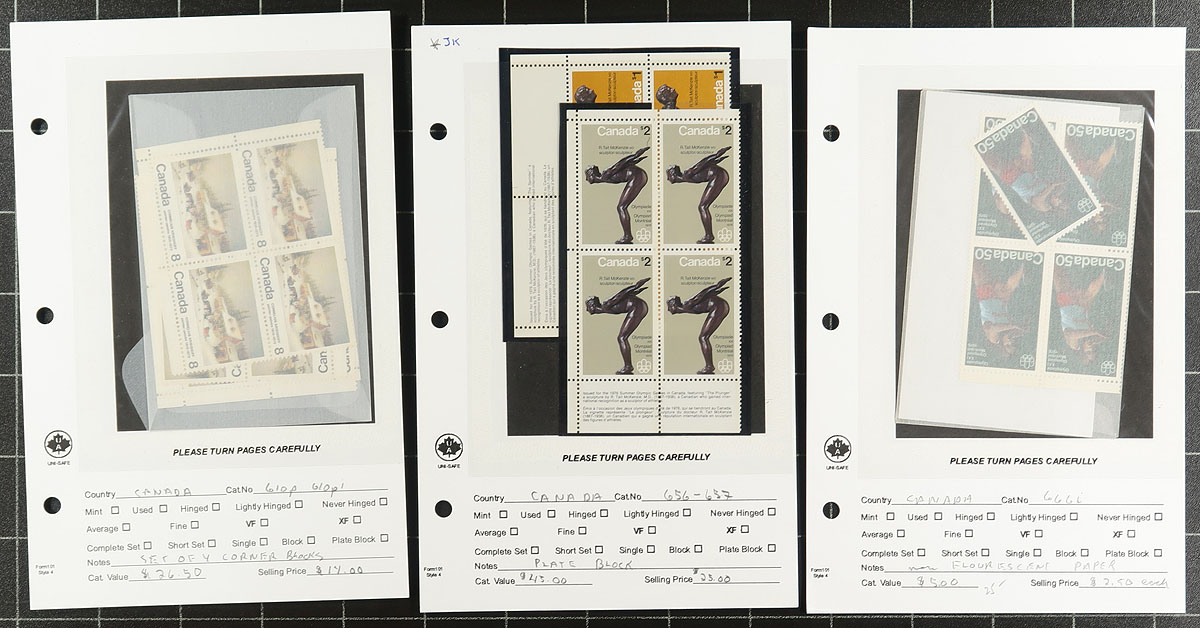 Canada 8
Canada 8
Canada 8
Canada 8
Can
Can
PLEASE TURN PAGES CAREFULLY
UA
UNI-SAFE
Country CANADA Cat.No 610p 610pi
Mint Used Hinged Lightly Hinged Never Hinged
Average Fine VF XF
Complete Set Short Set Single Block Block Plate Block
Notes SET OF 4 CORNER Blocks
Form101
Style 4
Cat. Value $26.50 Selling Price $14.00
JK
Canada $1
Canada $1
Canada $2
Canada $2
R. Tait McKenzie
sculptor-sculpteur
R. Tait McKenzie
sculptor-sculpteur
Olympiade
Olympiad
Montréal
Olympiade
Olympiad
Montréal
Canada $2
Canada $2
R. Tait McKenzie
sculptor-sculpteur
R. Tait McKenzie
sculptor-sculpteur
Olympiade
Olympiad
Montréal
Olympiade
Olympiad
Montréal
PLEASE TURN PAGES CAREFULLY
UA
UNI-SAFE
Country CANADA Cat.No 656-657
Mint Used Hinged Lightly Hinged Never Hinged
Average Fine VF XF
Complete Set Short Set Single Block Plate Block
Notes PLATE BLOCK
Form101
Style 4
Cat. Value $43.00 Selling Price $23.00
Canada 50
Canada 50
Canada 50
Canada 50
PLEASE TURN PAGES CAREFULLY
UA
UNI-SAFE
Country CANADA Cat.No 666i
Mint Used Hinged Lightly Hinged Never Hinged
Average Fine VF XF
Complete Set Short Set Single Block Plate Block
Notes non FLOURESCENT PAPER
Form101
Style 4
Cat. Value $5.00 Selling Price $2.50 each